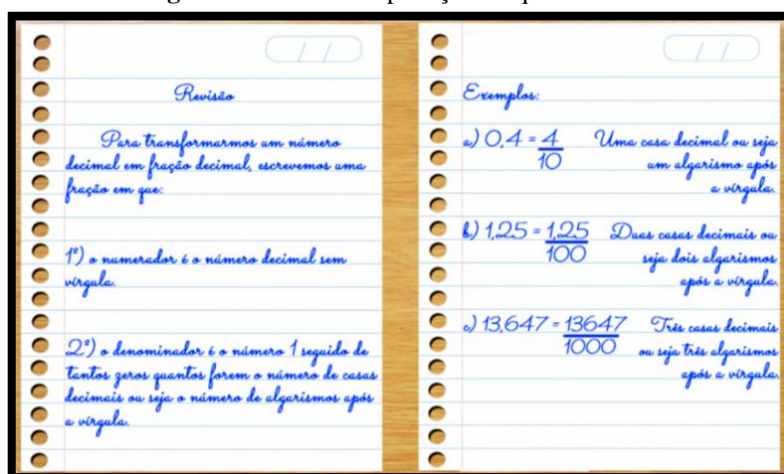 Revisão
Para transformarmos um número
decimal em fração decimal, escrevemos uma
fração em que:
1º) o numerador é o número decimal sem
vírgula.
2º) o denominador é o número 1 seguido de
tantos zeros quantos forem o número de casas
decimais ou seja o número de algarismos após
a vírgula.
Exemplos:
a) 0,4 = 4/10 Uma casa decimal ou seja
um algarismo após
a vírgula.
b) 1,25 = 1,25/100 Duas casas decimais ou
seja dois algarismos
após a vírgula.
c) 13,647 = 13647/1000 Três casas decimais
ou seja três algarismos
após a vírgula.